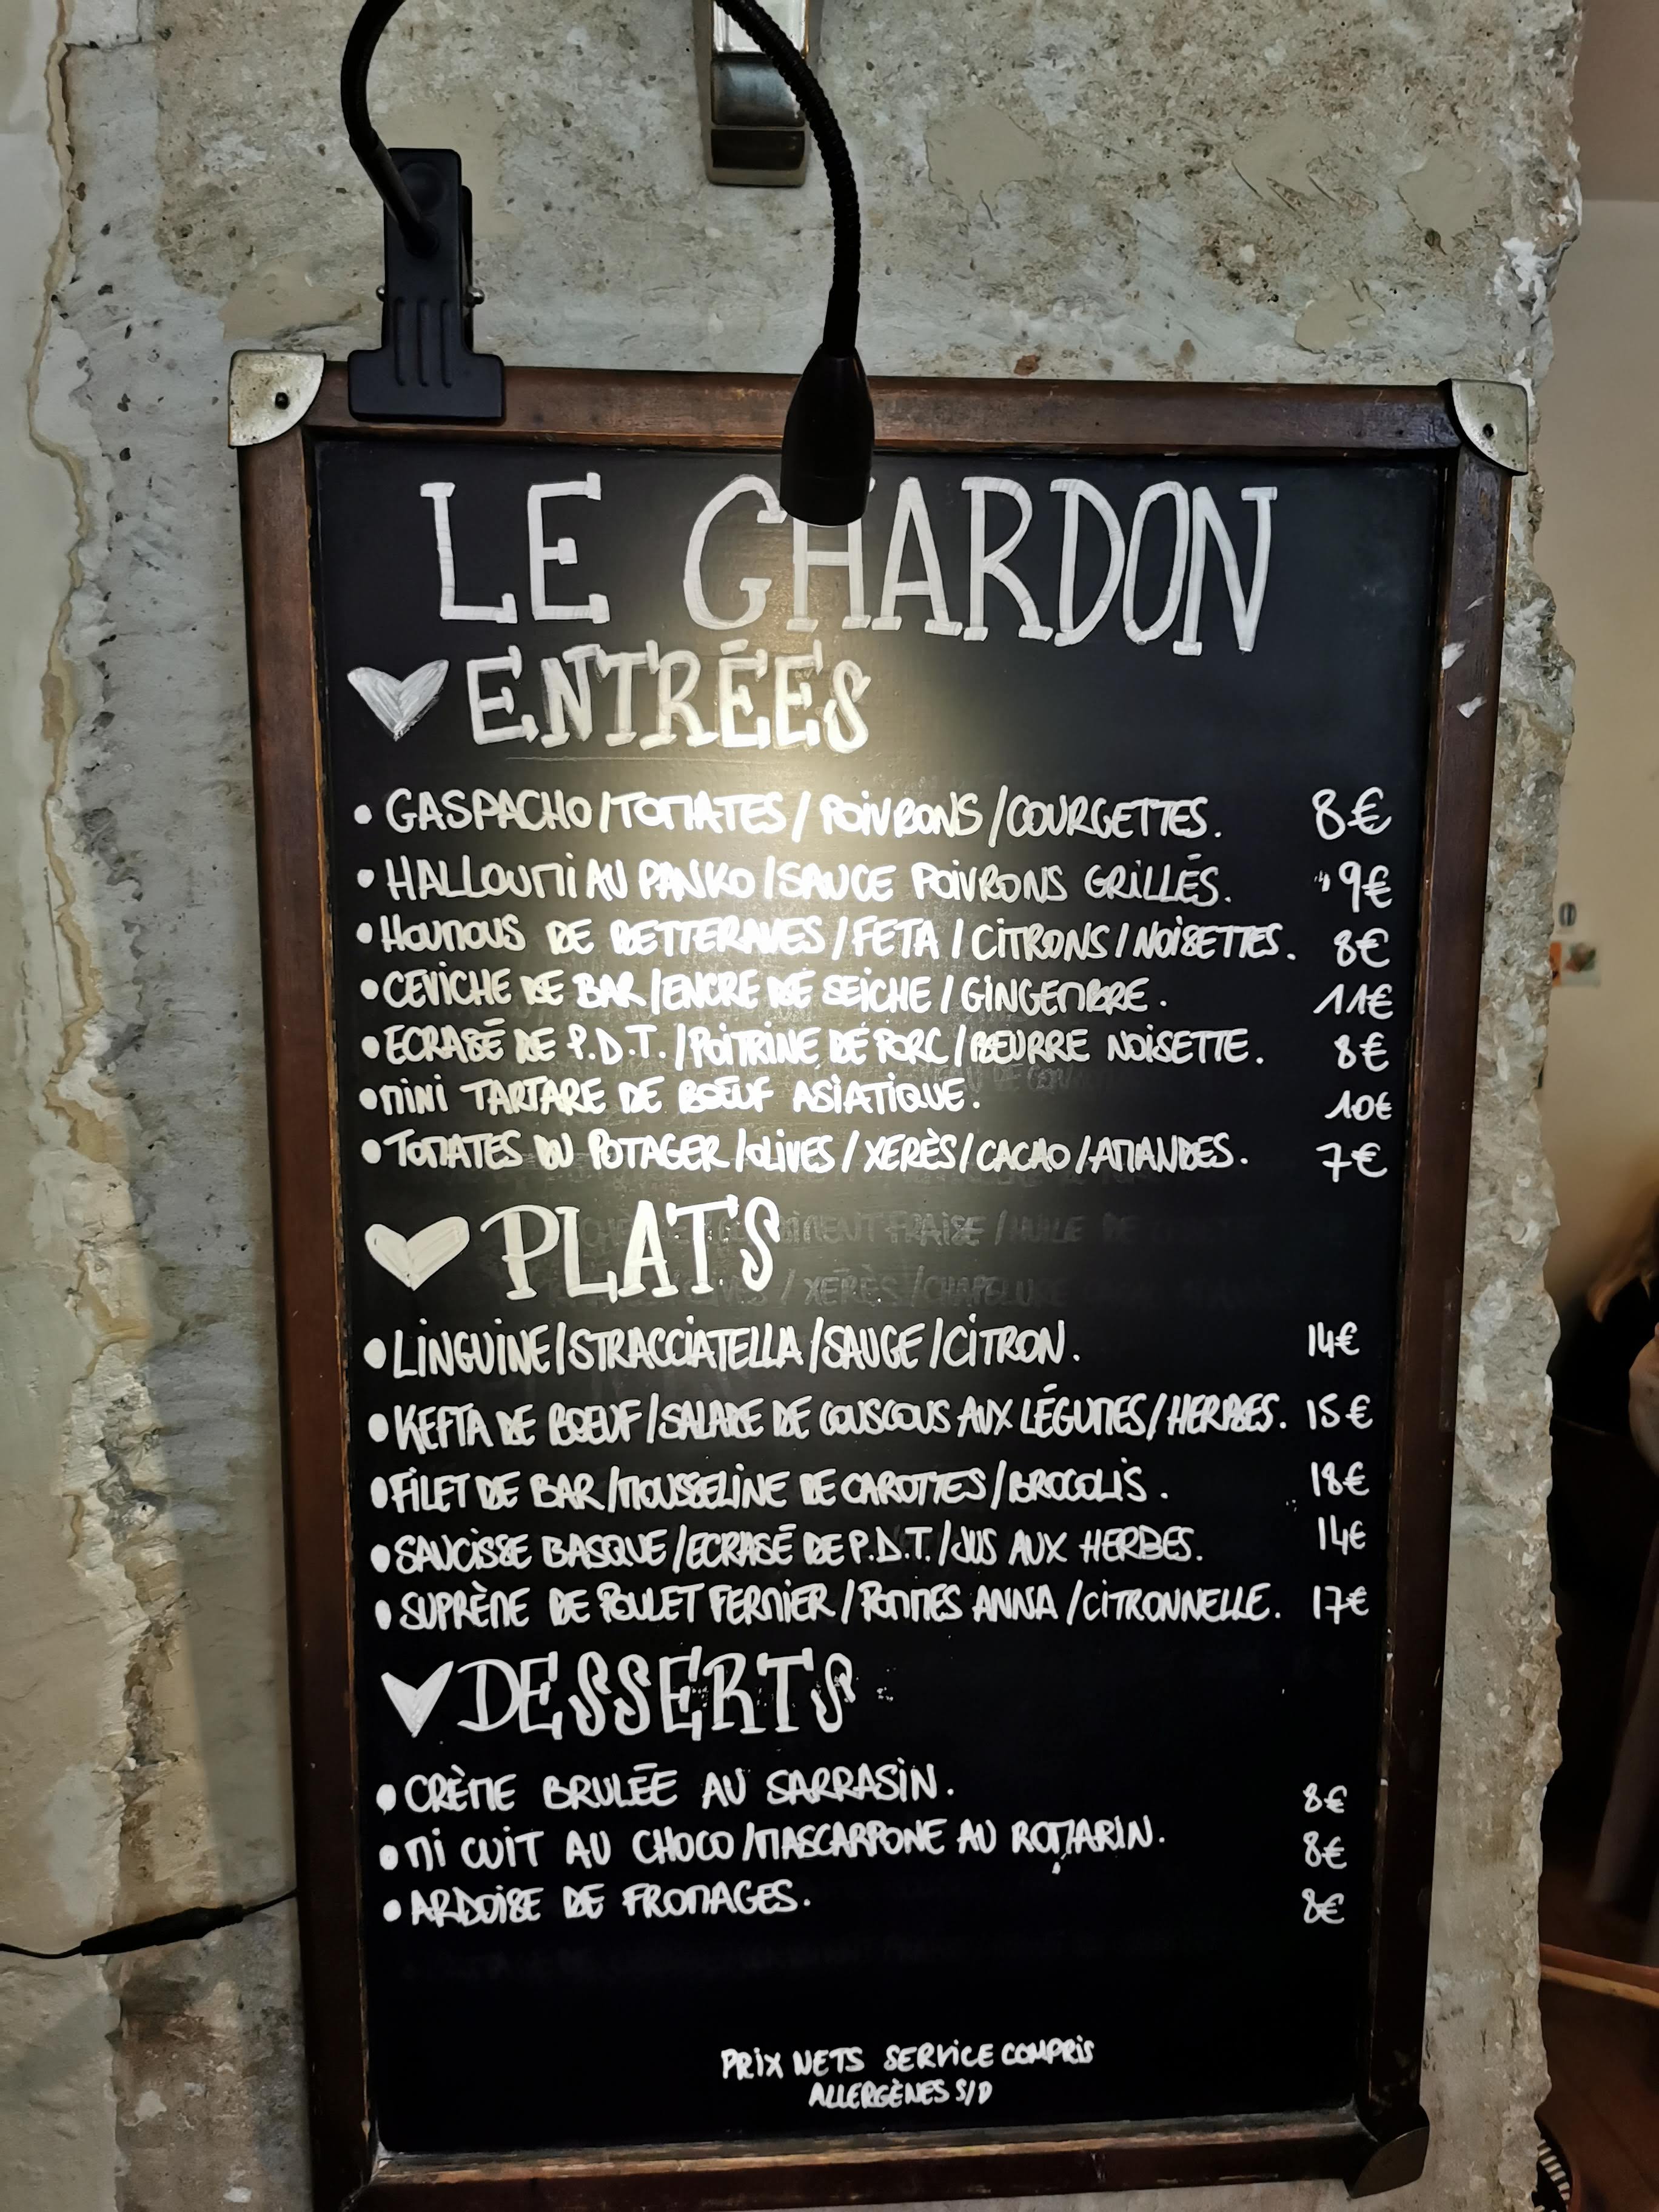 LE CHARDON
ENTRÉES
• GASPACHO/TOMATES/POIVRONS/COURGETTES. 8€
• HALLOUMI AU PANKO/SAUCE POIVRONS GRILLÉS. 9€
• HOUMOUS DE BETTERAVES/FETA/CITRONS/NOISETTES. 8€
• CEVICHE DE BAR/ENCRE DE SEICHE/GINGEMBRE. 11€
• ECRASÉ DE P.D.T./POITRINE DE PORC/BEURRE NOISETTE. 8€
• MINI TARTARE DE BOEUF ASIATIQUE. 10€
• TOMATES DU POTAGER/OLIVES/XERÈS/CACAO/AMANDES. 7€
PLATS
• LINGUINE/STRACCIATELLA/SAUGE/CITRON. 14€
• KEFTA DE BOEUF/SALADE DE COUSCOUS AUX LÉGUMES/HERBES. 15€
• FILET DE BAR/MOUSSELINE DE CAROTTES/BROCOLIS. 18€
• SAUCISSE BASQUE/ECRASÉ DE P.D.T./JUS AUX HERBES. 14€
• SUPRÈME DE POULET FERMIER/POMMES ANNA/CITRONNELLE. 17€
DESSERTS
• CRÈME BRULÉE AU SARRASIN. 8€
• MI CUIT AU CHOCO/MASCARPONE AU ROMARIN. 8€
• ARDOISE DE FROMAGES. 8€
PRIX NETS SERVICE COMPRIS
ALLERGÈNES S/D